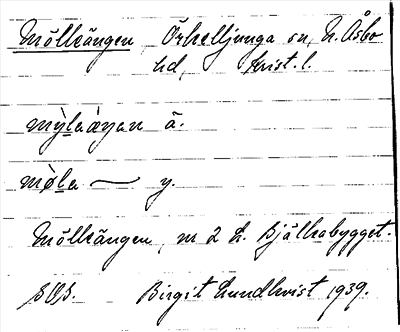 Mölleängen, Örkelljunga sn, N. Åsbo
hd, Krist. l.
mỳleæ̀ŋen ä.
mø̀le — y.
Mölleängen, nr 2 L. Bjälkabygget.
Birgit Lundkvist 1939.